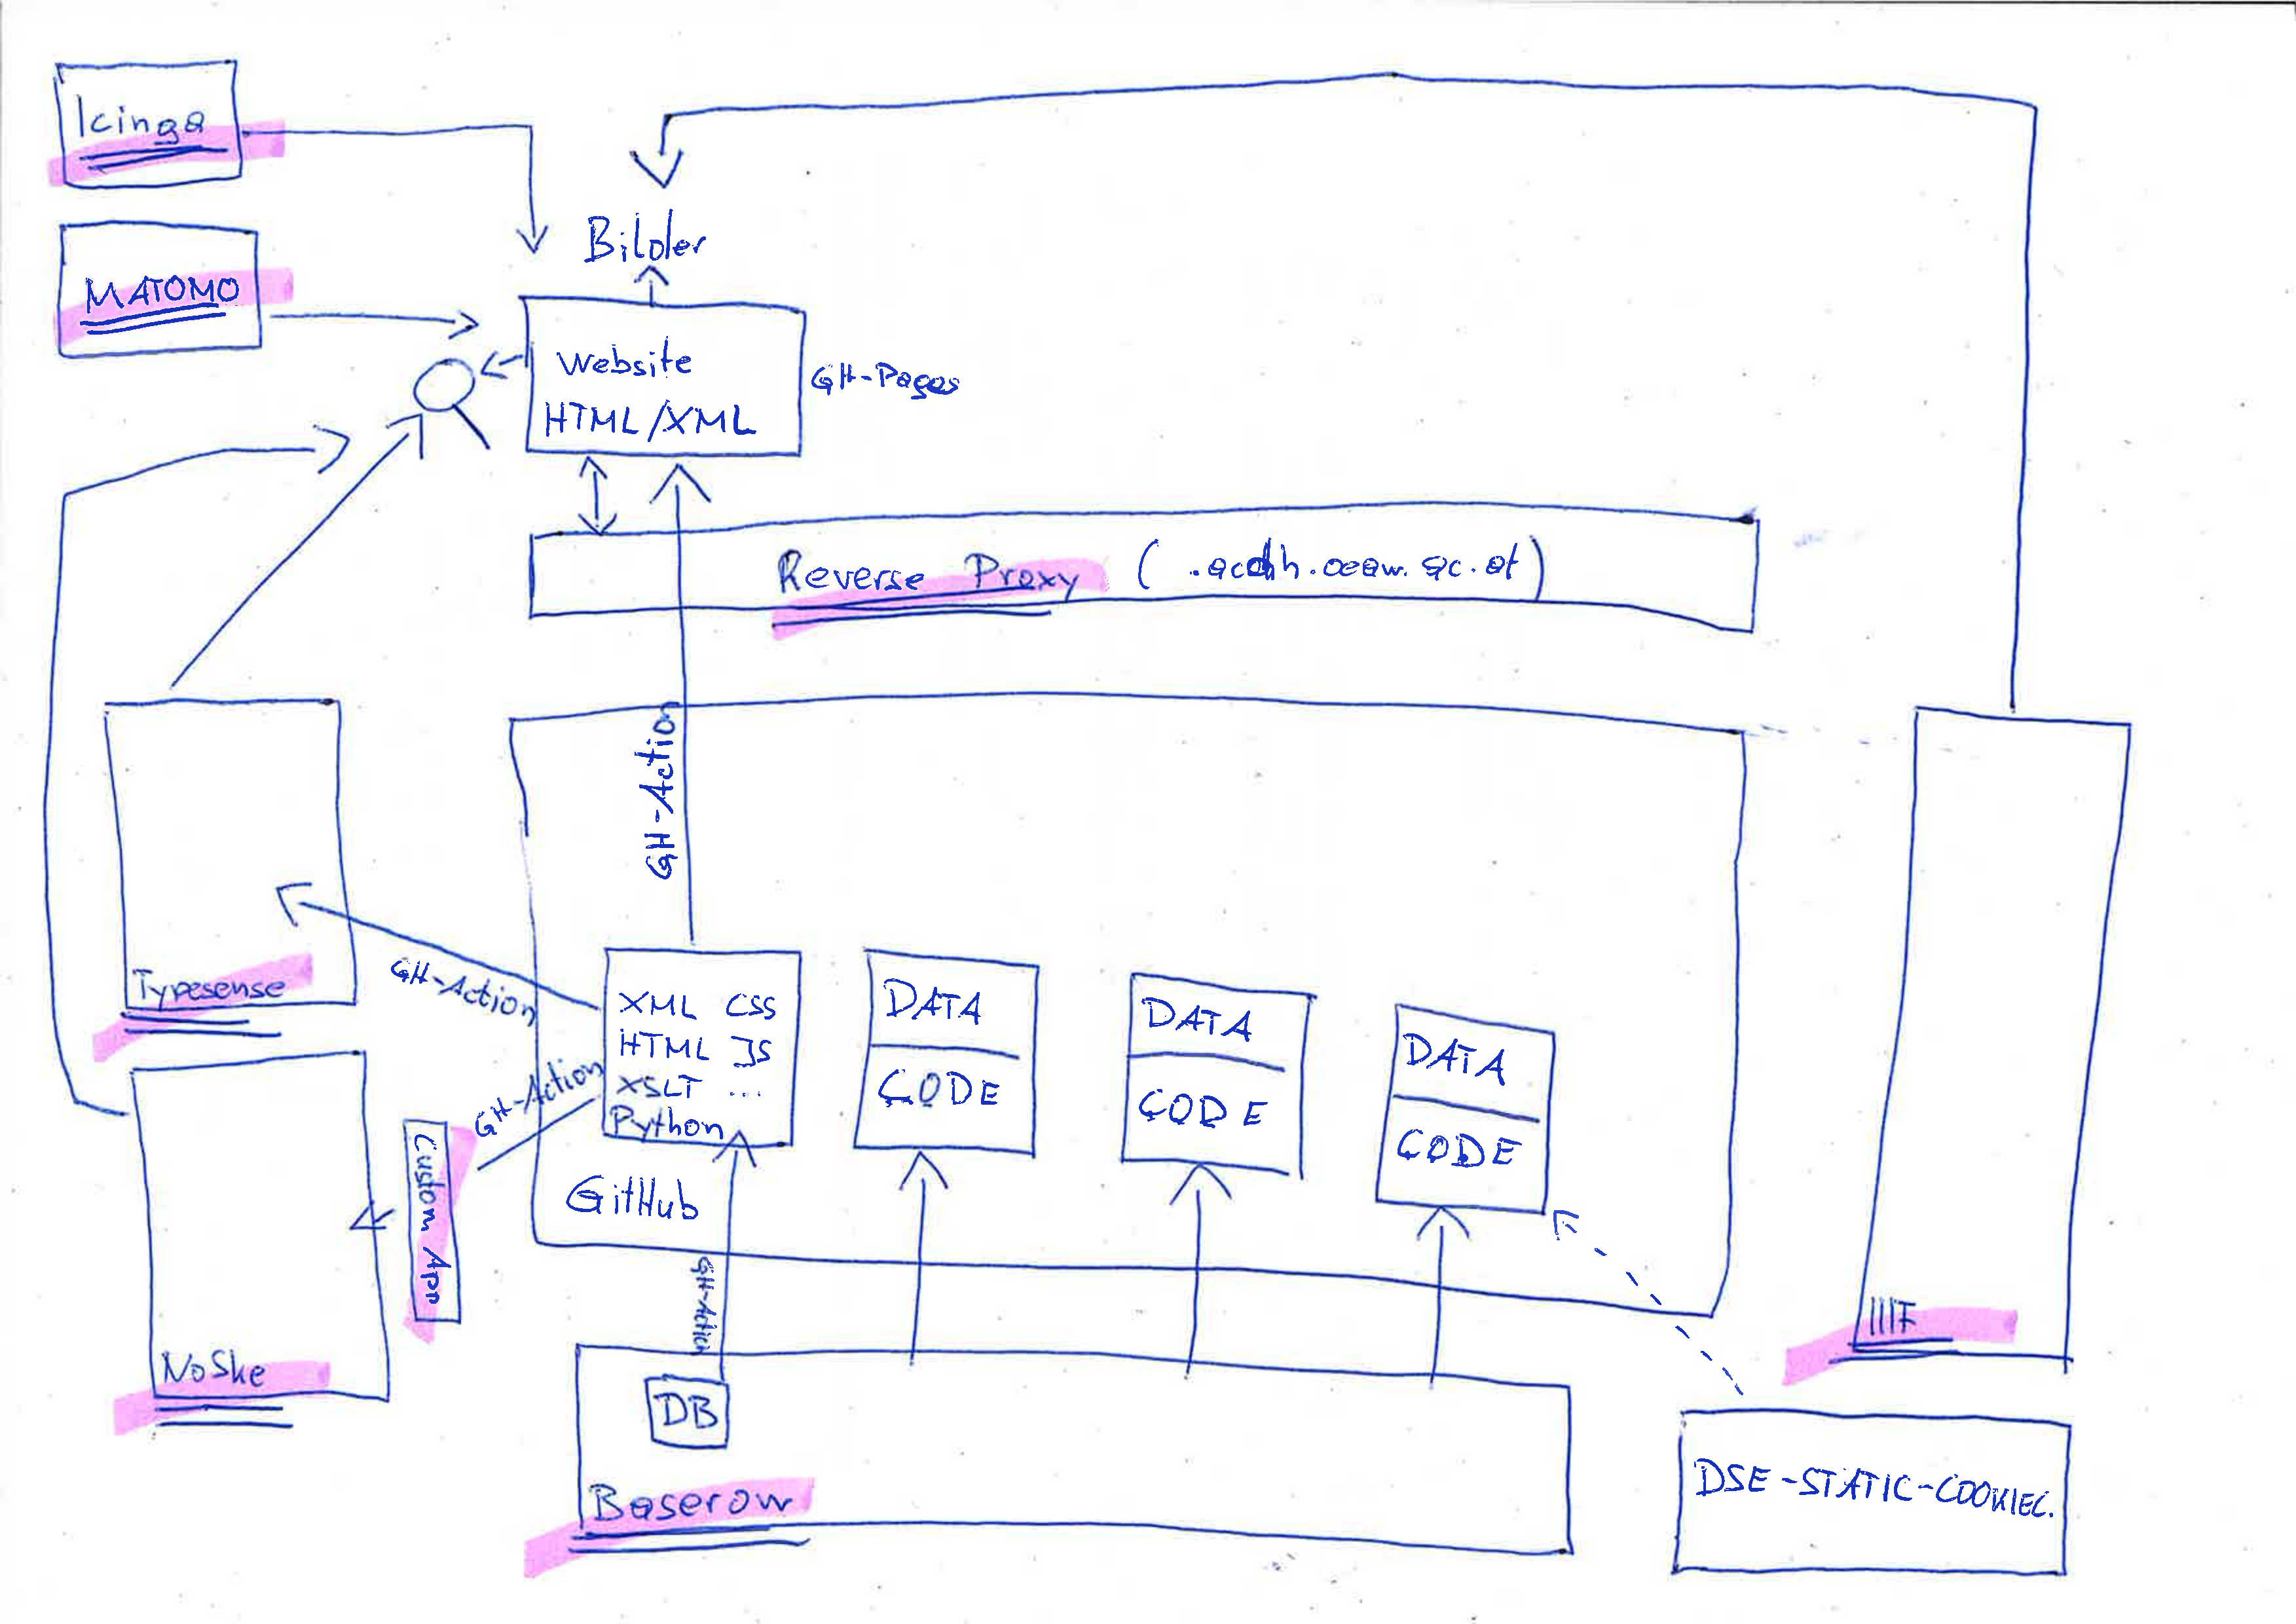 Icinga
MATOMO
Bilder
Website
HTML/XML
GH-Pages
Reverse Proxy (.acdh.oeaw.ac.at)
GH-Action
Typesense
GH-Action
XML CSS
HTML JS
XSLT ...
Python
DATA
CODE
DATA
CODE
DATA
CODE
GH-Action
Custom App
GitHub
GH-Action
NoSke
DB
Baserow
IIIF
DSE-STATIC-COOKIEC.